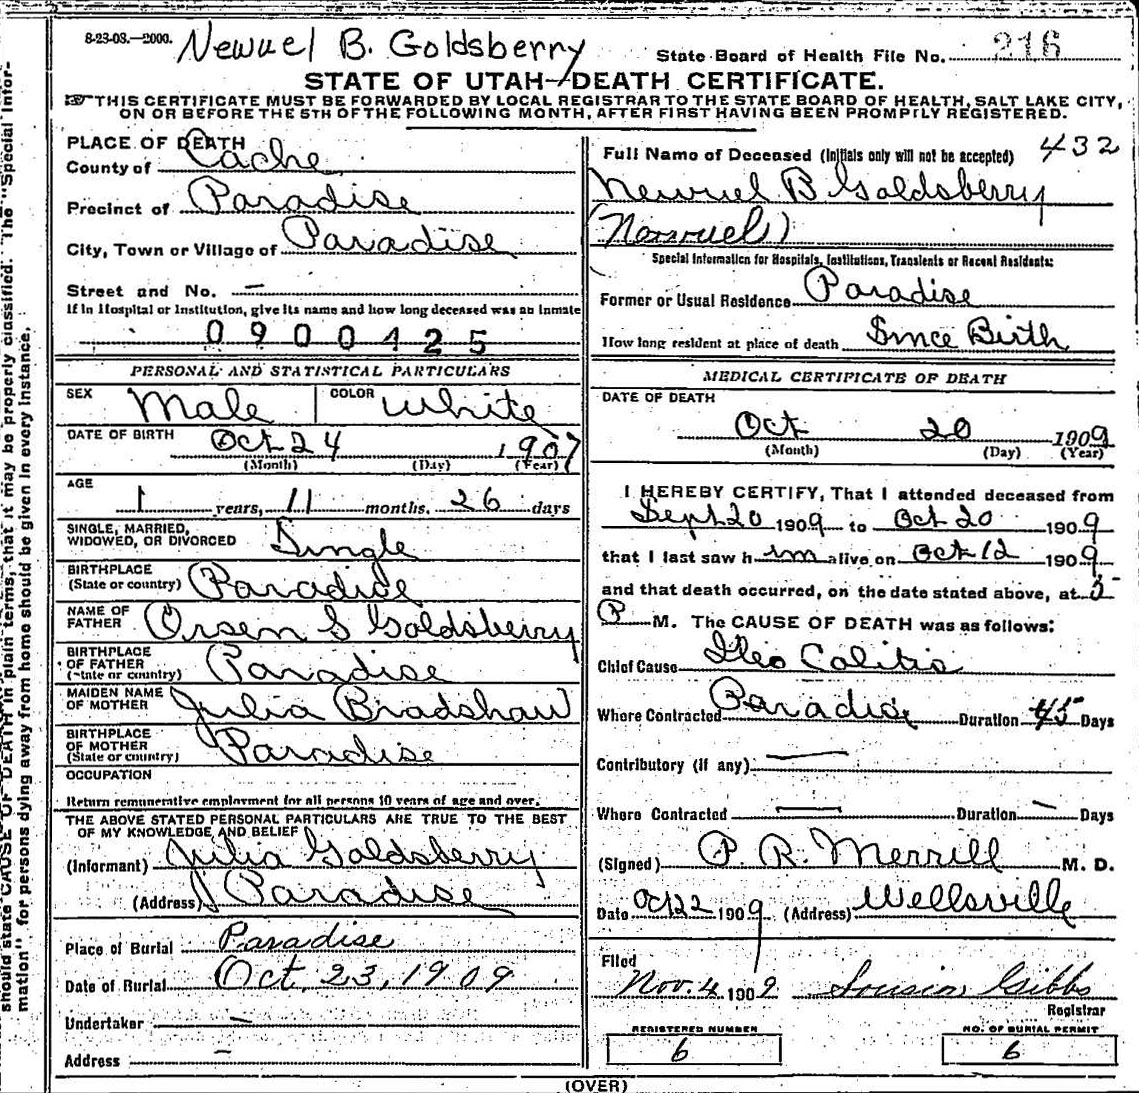 8-23-08.—2000. Newuel B. Goldsberry
State Board of Health File No. 216
STATE OF UTAH—DEATH CERTIFICATE.
THIS CERTIFICATE MUST BE FORWARDED BY LOCAL REGISTRAR TO THE STATE BOARD OF HEALTH, SALT LAKE CITY,
ON OR BEFORE THE 5TH OF THE FOLLOWING MONTH, AFTER FIRST HAVING BEEN PROMPTLY REGISTERED.
PLACE OF DEATH
County of Cache
Precinct of Paradise
City, Town or Village of Paradise
Street and No. —
If in Hospital or Institution, give its name and how long deceased was an inmate
0900425
PERSONAL AND STATISTICAL PARTICULARS
SEX Male COLOR White
DATE OF BIRTH Oct 24 1907
(Month) (Day) (Year)
AGE
1 years, 11 months, 26 days
SINGLE, MARRIED,
WIDOWED, OR DIVORCED Single
BIRTHPLACE
(State or country) Paradise
NAME OF
FATHER Orsen S Goldsberry
BIRTHPLACE
OF FATHER
(State or country) Paradise
MAIDEN NAME
OF MOTHER Julia Bradshaw
BIRTHPLACE
OF MOTHER
(State or country) Paradise
OCCUPATION
Return remunerative employment for all persons 10 years of age and over.
THE ABOVE STATED PERSONAL PARTICULARS ARE TRUE TO THE BEST
OF MY KNOWLEDGE AND BELIEF
(Informant) Julia Goldsberry
(Address) Paradise
Place of Burial Paradise
Date of Burial Oct. 23, 1909
Undertaker —
Address —
Full Name of Deceased (Initials only will not be accepted) 432
Newruel B Goldsberry
(Norruel)
Special Information for Hospitals, Institutions, Transients or Recent Residents:
Former or Usual Residence Paradise
How long resident at place of death Since Birth
MEDICAL CERTIFICATE OF DEATH
DATE OF DEATH
Oct 20 1909
(Month) (Day) (Year)
I HEREBY CERTIFY, That I attended deceased from
Sept 20 1909 to Oct 20 1909
that I last saw him alive on Oct 12 1909
and that death occurred, on the date stated above, at 5
P M. The CAUSE OF DEATH was as follows:
Chief Cause Ileo Colitis
Where Contracted Paradise Duration 45 Days
Contributory (if any) —
Where Contracted — Duration — Days
(Signed) P. R. Merrill M. D.
Date Oct 22 1909 (Address) Wellsville
Filed
Nov. 4 1909 Gibbs
Registrar
REGISTERED NUMBER NO. OF BURIAL PERMIT
6 6
(OVER)
should state CAUSE OF DEATH in plain terms, that it may be properly classified. The "Special Infor-
mation" for persons dying away from home should be given in every instance.